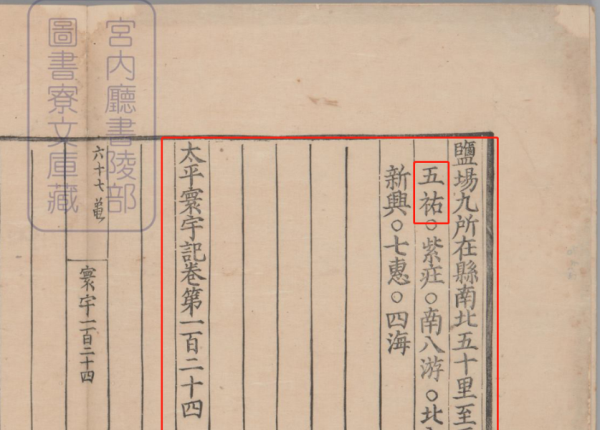 鹽場九所在縣南北五十里至
五祐○紫疰○南八游○北
新興○七惠○四海
太平寰宇記卷第一百二十四
六十七
寰宇一百二十四
宮内廳書陵部
圖書寮文庫藏